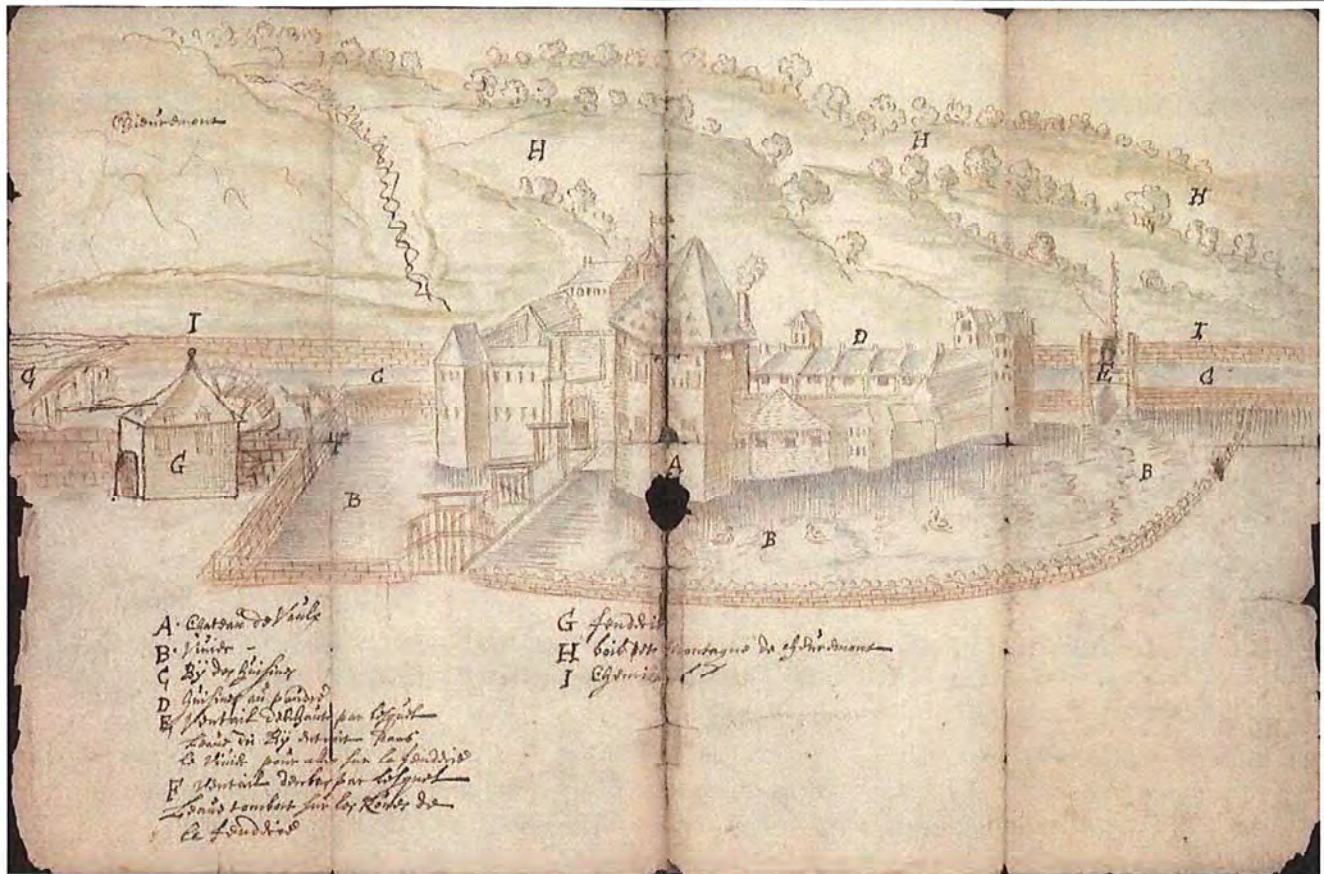 Chieuremont
H
H
H
I
D
I
G
G
E
G
G
F
A
B
B
B
A Chateau de Vaulx
B Vivier
C Rÿ des Usines
D
E Ventail d'enhault par lequel
leaue du Rÿ entroit dans
le Vivier pour aler sur la fenderie
F Ventail den bas par lequel
leaue tomboit sur les Roues de
la fenderie
G fenderie
H bois et montagne de Cheuremont
I Chemin